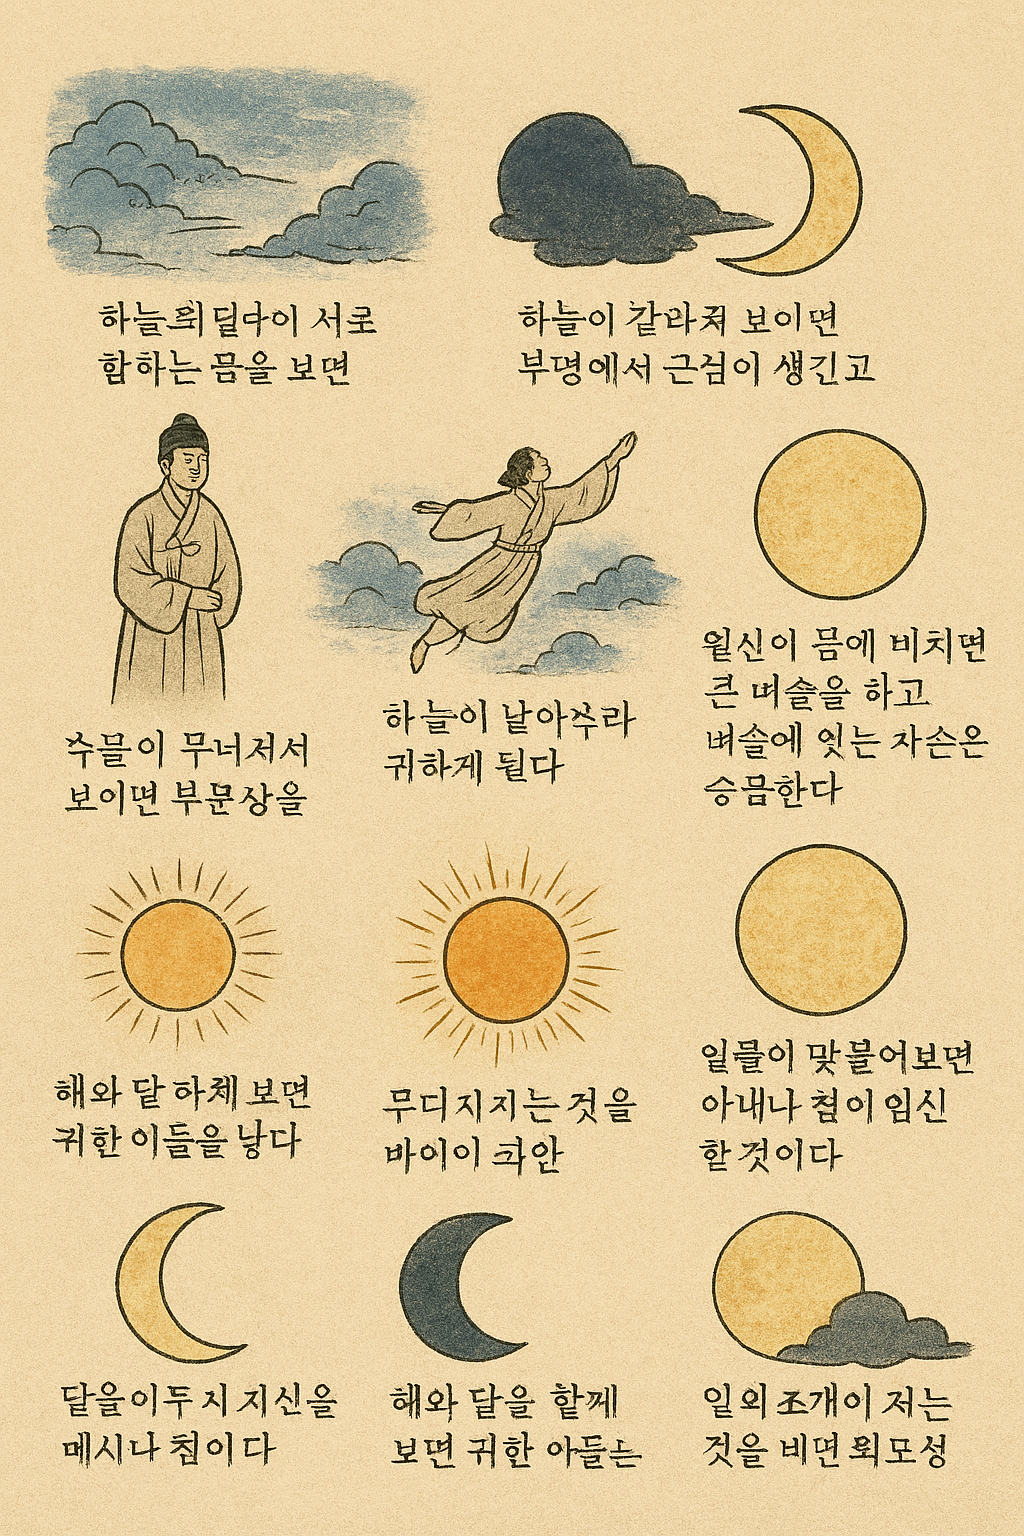 서로
하는 몸을 보면
하늘이 갈라져 보이면
부명에서 근심이 생긴고
수믈이 무너져서
보이면 부문상을
하늘이 날아
귀하게 될다
월신이 몸에 비치면
큰 벼슬을 하고
벼슬에 잇는 자손은
승믐한다
해와 달 하체 보면
귀한 이들을 낳다
무디지지는 것을
바이이
일믈이 맞불어보면
아내나 첨이 임신
할 것이다
달을이두 지 지신을
메시나 첨이다
해와 달을 함께
보면 귀한 아들는
일외 조개이 저는
것을 비면 뢰모성